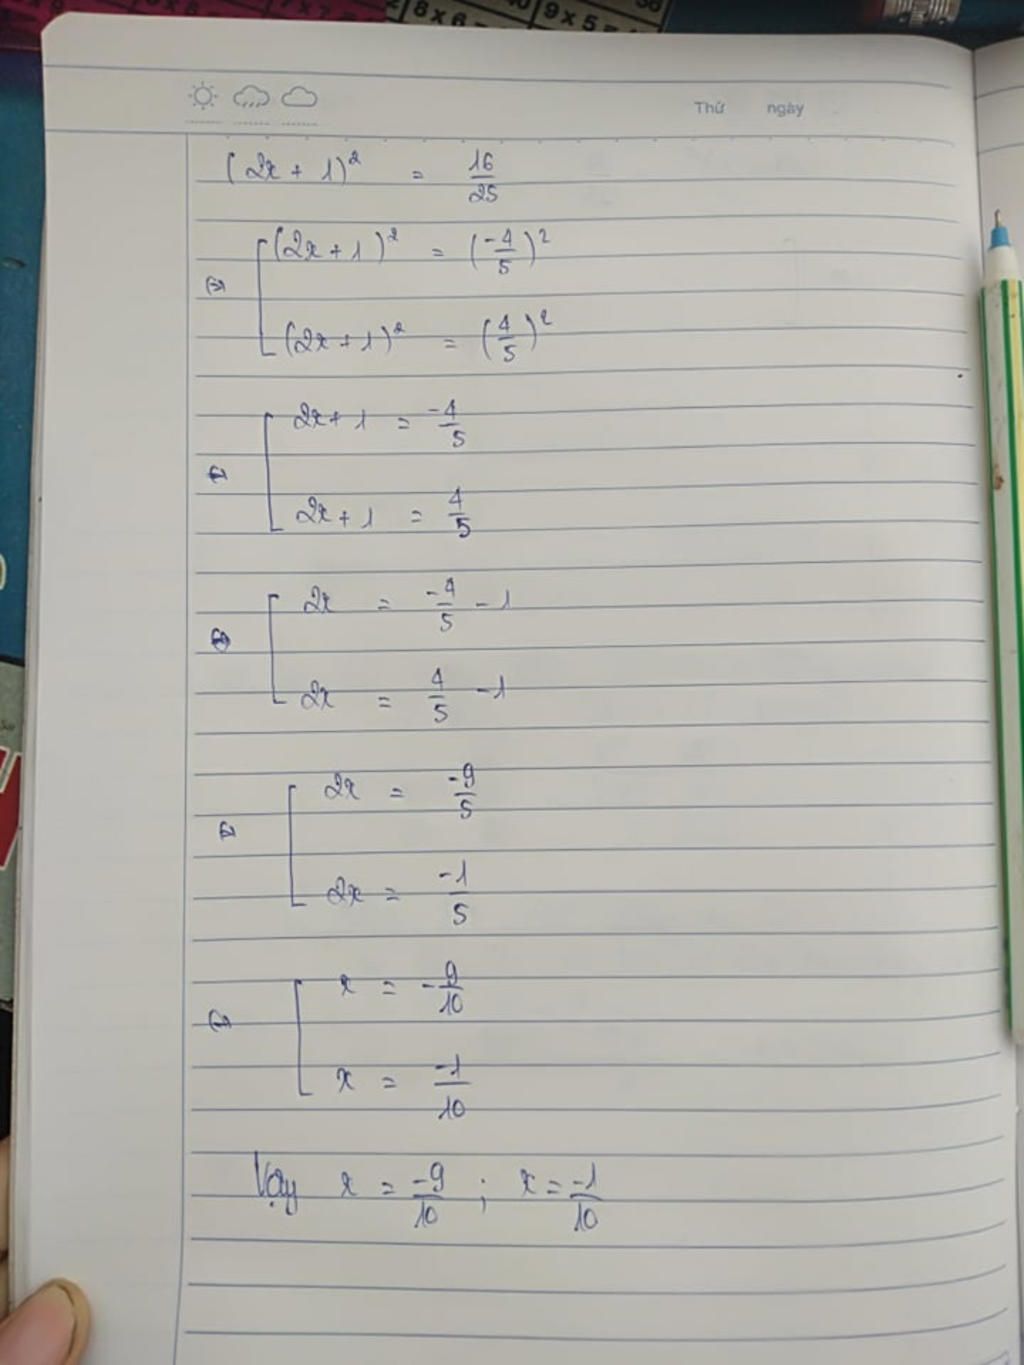 8 x 6 = 9 x 5 =
Thứ ngày
(2x + 1)² = 16/25
⇔ [ (2x + 1)² = (-4/5)²
(2x + 1)² = (4/5)²
⇔ [ 2x + 1 = -4/5
2x + 1 = 4/5
⇔ [ 2x = -4/5 - 1
2x = 4/5 - 1
⇔ [ 2x = -9/5
2x = -1/5
⇔ [ x = -9/10
x = -1/10
Vậy x = -9/10 ; x = -1/10